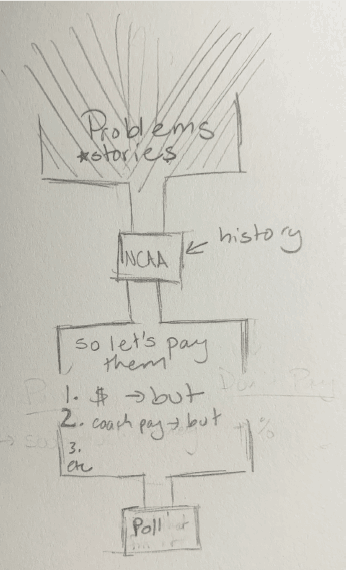 Problems
*stories
history
NCAA
so let's pay
them
1. $ → but
2. coach pay → but
3.
etc
Poll